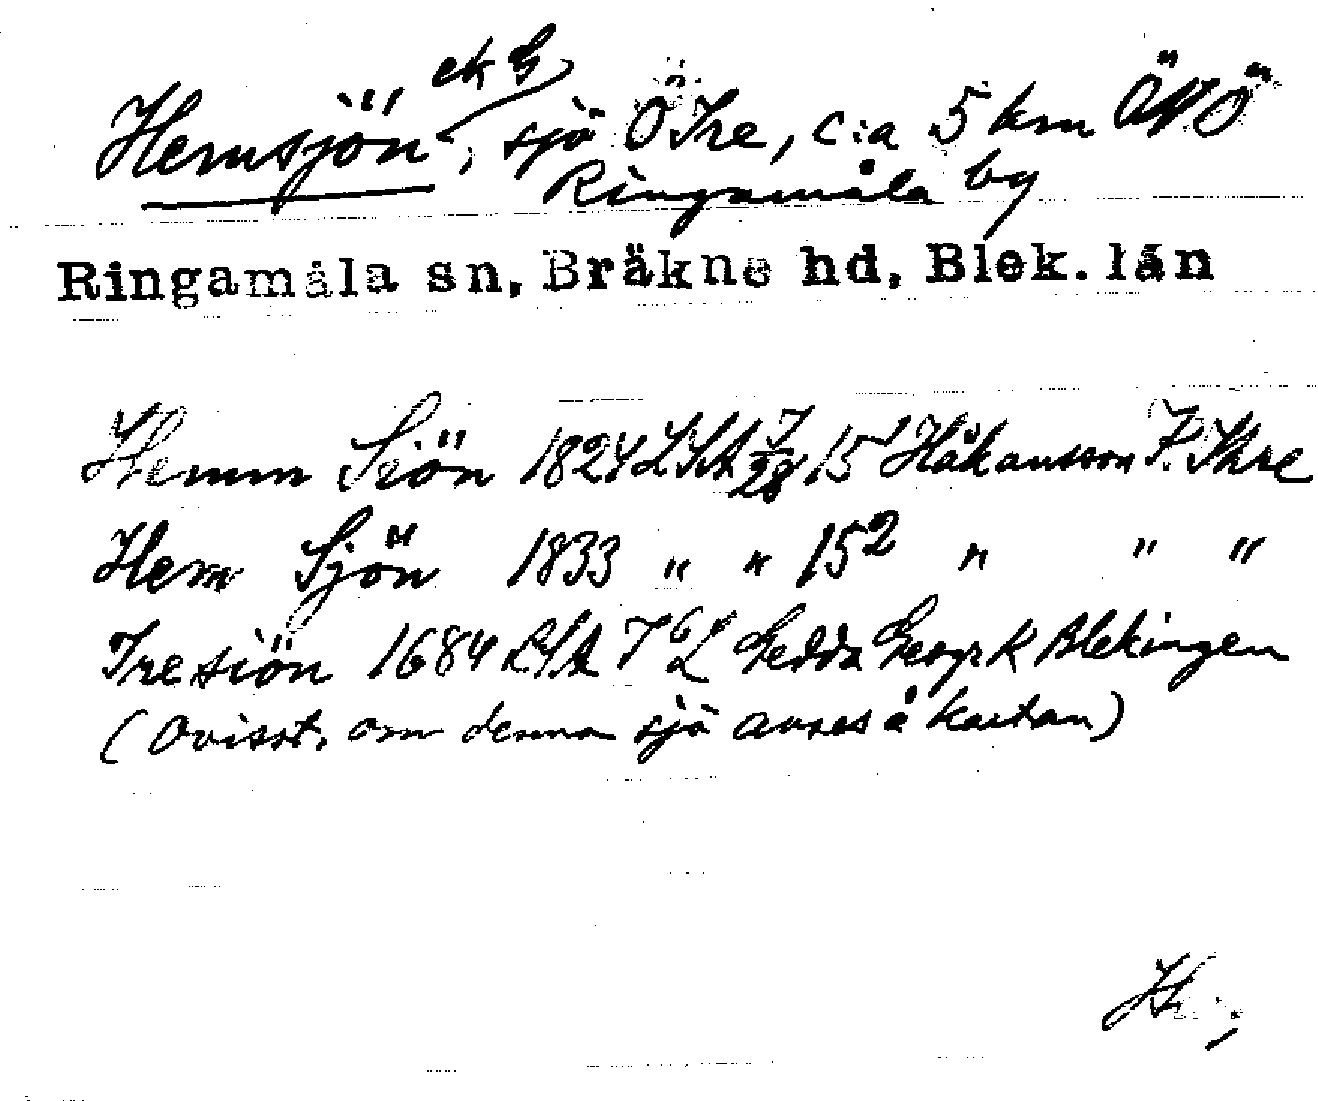 Hemsjön ek G, sjö Ö Ire, c:a 5 km ÖNÖ
Ringamåla by
Ringamåla sn, Bräkne hd, Blek. län
Hemm Siön 1824 LSA 15¹ Håkansson F. Ihre
Hem Sjön 1833 " " 15² " " "
Iresiön 1684 RSA Gedda Geogr K Blekingen
(Ovisst, om denna sjö avses å kartan)